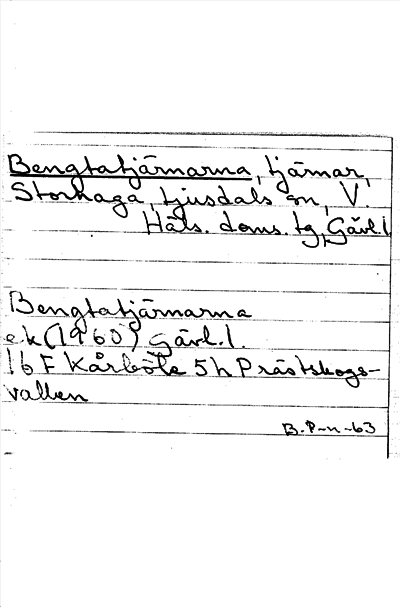 Bengtatjärnarna, tjärnar,
Storhaga, Ljusdals sn, V.
Häls. doms. tg, Gävl.l.
Bengtatjärnarna
ek (1960) Gävl.l.
16 F Kårböle 5h Prästskogs-
vallen
B.P-n-63